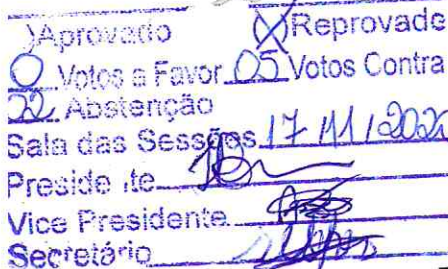 )Aprovado (X)Reprovado
0 Votos a Favor 05 Votos Contra
02 Abstenção
Sala das Sessões 17/11/2020
Preside.te
Vice Presidente
Secretário